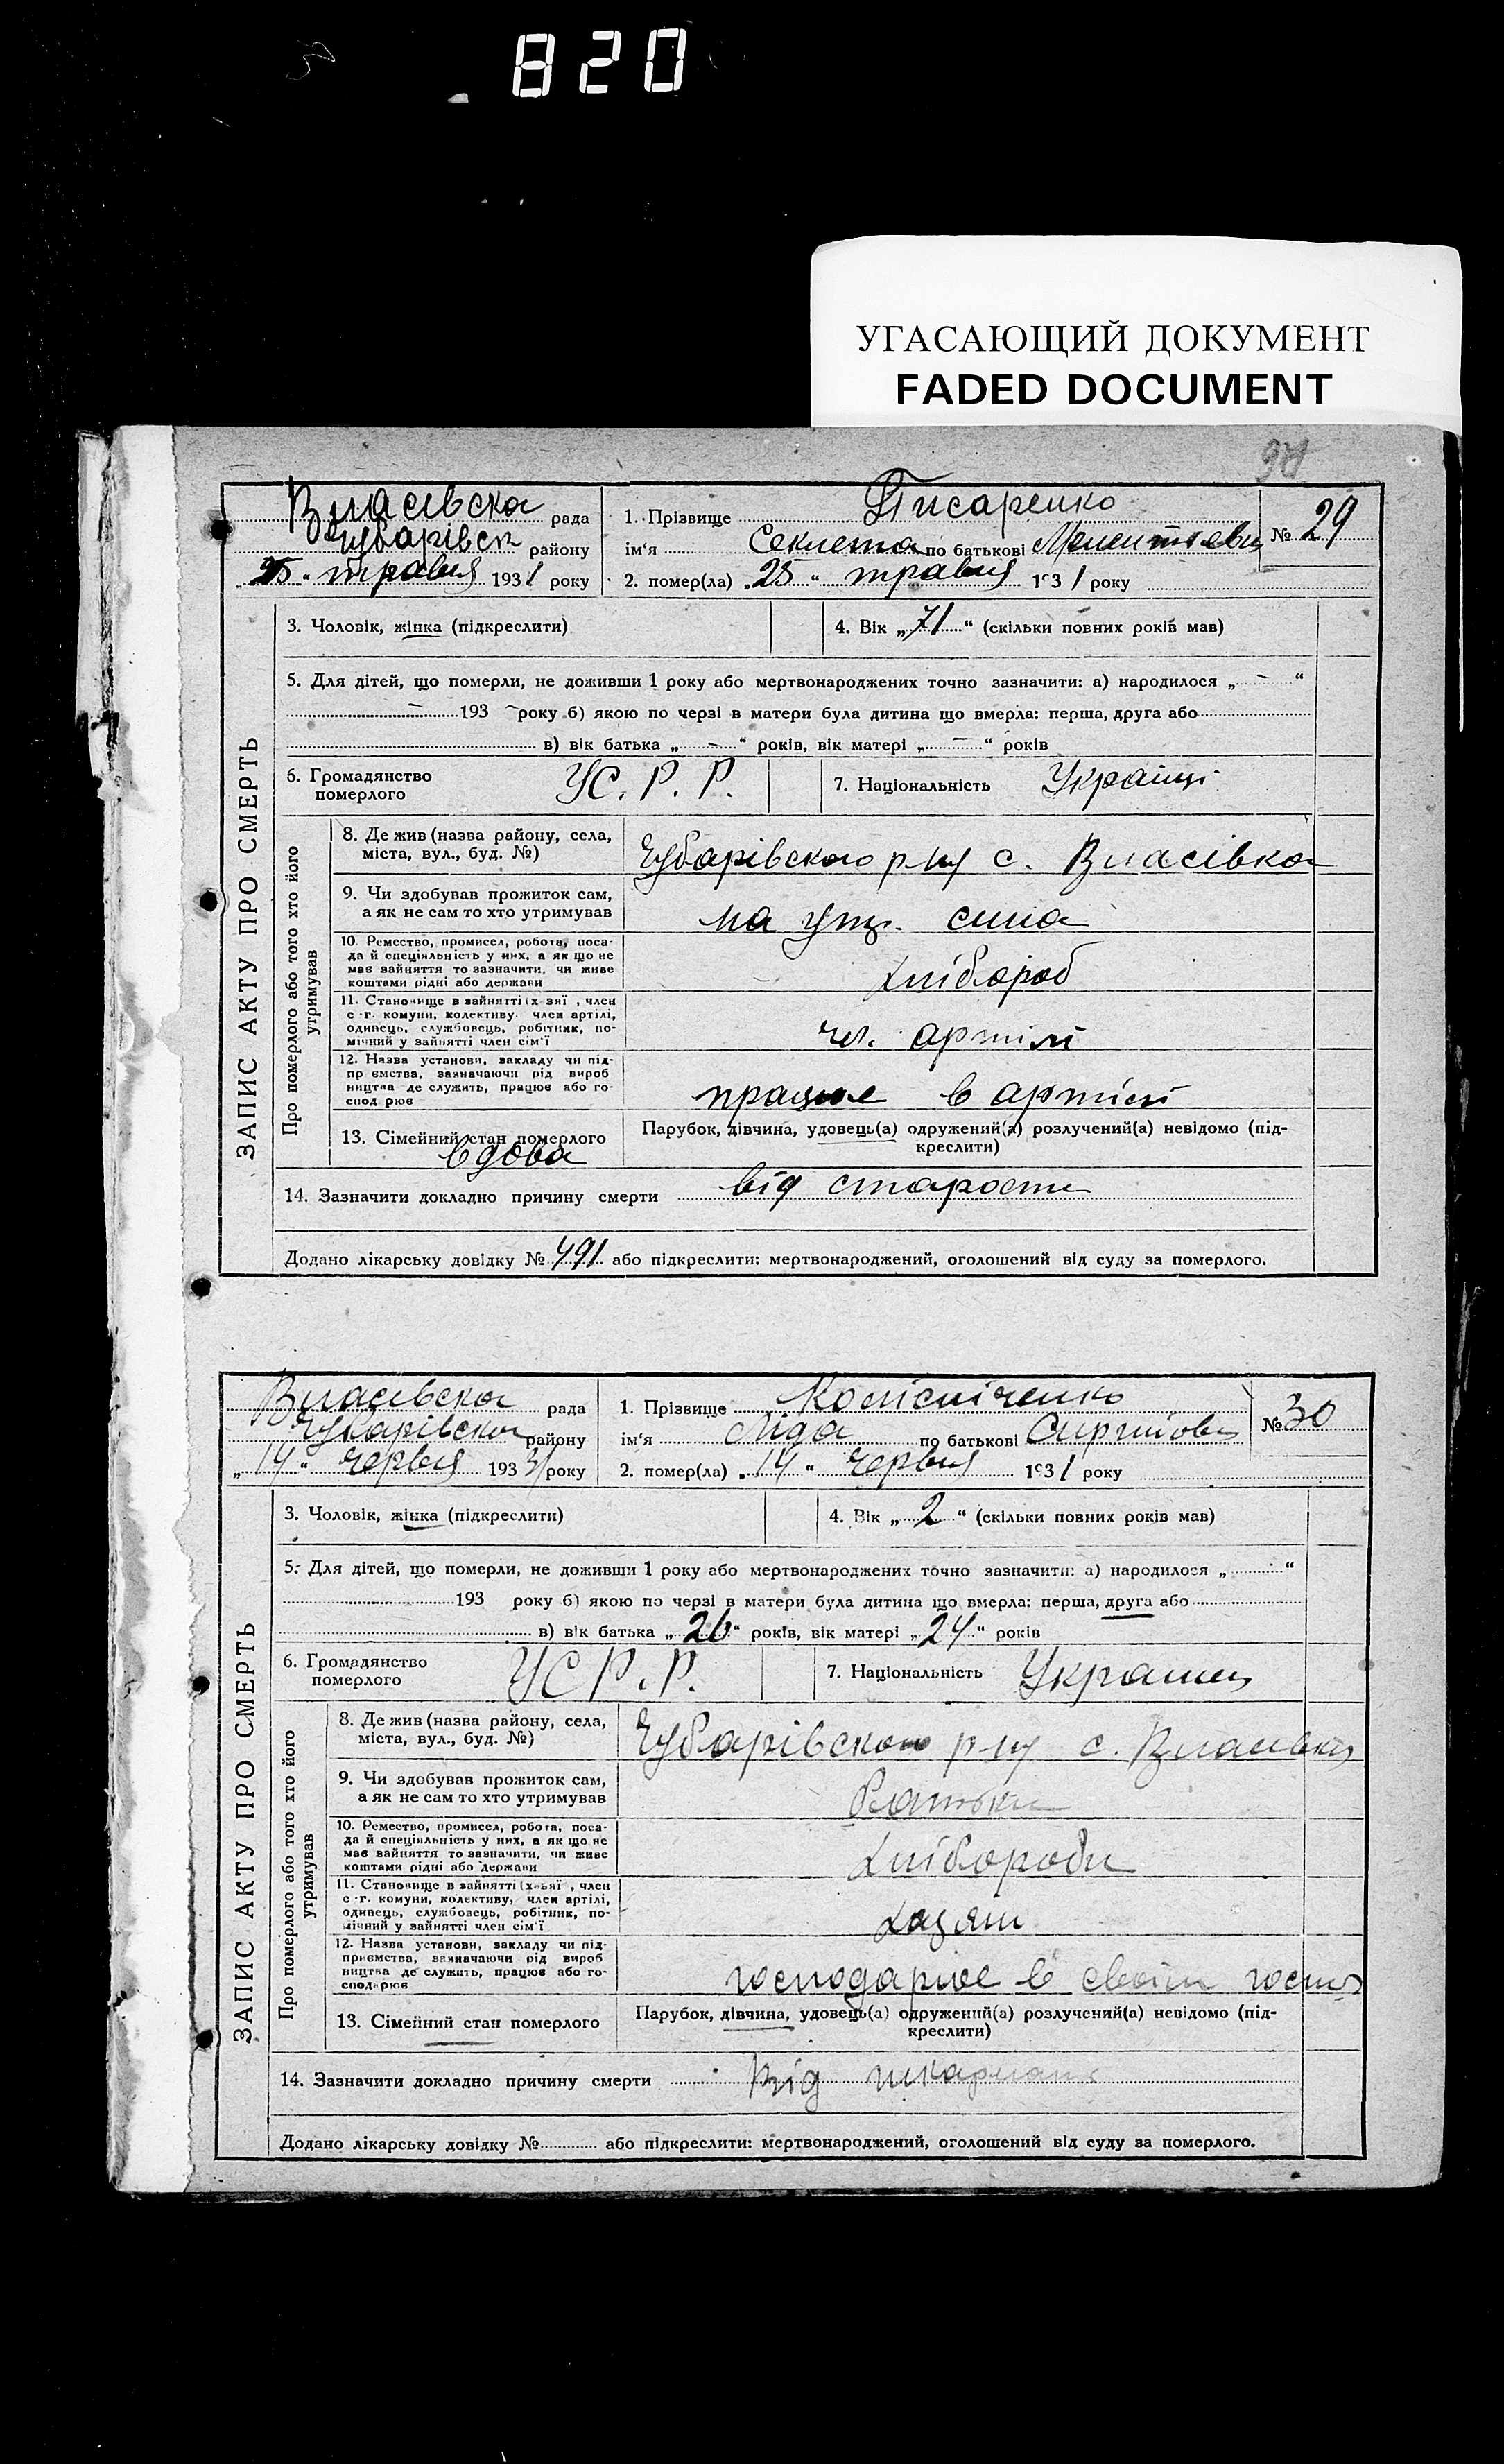 820
УГАСАЮЩИЙ ДОКУМЕНТ
FADED DOCUMENT
ЗАПИС АКТУ ПРО СМЕРТЬ
Власівска рада
Чубарівск району
„25“ травня 1931 року
1. Прізвище Писаренко
ім‘я Секлета по батькові
№ 29
2. помер(ла) „25“ травня 1931 року
3. Чоловік, жінка (підкреслити)
4. Вік „71“ (скільки повних років мав)
5. Для дітей, що померли, не доживши 1 року або мертвонароджених точно зазначити: а) народилося „ – “
– 193 – року б) якою по черзі в матери була дитина що вмерла: перша, друга або
в) вік батька „ – “ років, вік матері „ – “ років
6. Громадянство померлого УС.Р.Р.
7. Національність Українц
Про померлого або того хто його утримував
8. Де жив (назва району, села,
міста, вул., буд. №)
Чубарівского р-ну с. Власівка
9. Чи здобував прожиток сам,
а як не сам то хто утримував
на утр. сина
10. Ремество, промисел, робота, поса-
да й спеціяльність у них, а як що не
має зайняття то зазначити, чи живе
коштами рідні або держави
хлібороб
11. Становище в зайнятті (х-зяї , член
с-г. комуни, колективу, член артілі,
одинець, службовець, робітник, по-
мічний у зайнятті член сім‘ї
чл. артілі
12. Назва установи, закладу чи під-
пр ємства, зазначаючи рід вироб
ництва де служить, працює або го-
спод рює
працює в артілі
13. Сімейний стан померлого
вдова
Парубок, дівчина, удовець(а) одружений(а) розлучений(а) невідомо (під-
креслити)
14. Зазначити докладно причину смерти від старости
Додано лікарську довідку № 491 або підкреслити: мертвонароджений, оголошений від суду за померлого.
ЗАПИС АКТУ ПРО СМЕРТЬ
Власівска рада
Чубарівска району
„14“ червня 1931 року
1. Прізвище Колісніченко
ім‘я Ліда по батькові
№ 30
2. помер(ла) „14“ червня 1931 року
3. Чоловік, жінка (підкреслити)
4. Вік „2“ (скільки повних років мав)
5. Для дітей, що померли, не доживши 1 року або мертвонароджених точно зазначити: а) народилося „ “
193 року б) якою по черзі в матери була дитина що вмерла: перша, друга або
в) вік батька „26“ років, вік матері „24“ років
6. Громадянство померлого УСР.Р.
7. Національність Украинц
Про померлого або того хто його утримував
8. Де жив (назва району, села,
міста, вул., буд. №)
Чубарівского р-ну с. Власівка
9. Чи здобував прожиток сам,
а як не сам то хто утримував
Батьки
10. Ремество, промисел, робота, поса-
да й спеціяльність у них, а як що не
має зайняття то зазначити, чи живе
коштами рідні або держави
хлібороби
11. Становище в зайнятті (х-зяї , член
с-г. комуни, колективу, член артілі,
одинець, службовець, робітник, по-
мічний у зайнятті член сім‘ї
хазяїн
12. Назва установи, закладу чи під-
приємства, зазначаючи рід вироб
ництва де служить, працює або го-
сподарює
господарює в своїм госп
13. Сімейний стан померлого
Парубок, дівчина, удовець(а) одружений(а) розлучений(а) невідомо (під-
креслити)
14. Зазначити докладно причину смерти Від
Додано лікарську довідку № або підкреслити: мертвонароджений, оголошений від суду за померлого.